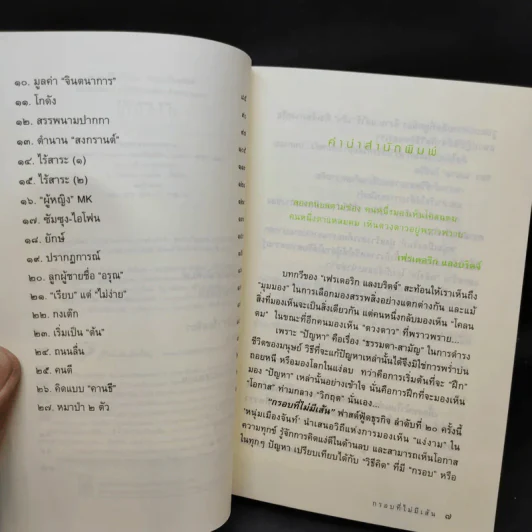 ๑๐. มูลค่า "จินตนาการ"
๑๑. โกดัง
๑๒. สรรพนามปากกา
๑๓. ตำนาน "สงกรานต์"
๑๔. ไร้สาระ (๑)
๑๕. ไร้สาระ (๒)
๑๖. "ผู้หญิง" MK
๑๗. ซัมซุง-ไอโฟน
๑๘. ยักษ์
๑๙. ปรากฏการณ์
๒๐. ลูกผู้ชายชื่อ "อรุณ"
๒๑. "เรียบ" แต่ "ไม่ง่าย"
๒๒. กงเต๊ก
๒๓. เริ่มเป็น "ต้น"
๒๔. ถนนลื่น
๒๕. คนดี
๒๖. คิดแบบ "คานธี"
๒๗. หมาป่า ๒ ตัว
คำนำสำนักพิมพ์
เฟรเดอริก แลงบริดจ์
บทกวีของ "เฟรเดอริก แลงบริดจ์" สะท้อนให้เราเห็นถึง
"มุมมอง" ในการเลือกมองสรรพสิ่งอย่างแตกต่างกัน และแม้
สิ่งที่มองเห็นจะเป็นสิ่งเดียวกัน แต่คนหนึ่งกลับมองเห็น "โคลน
ตม" ในขณะที่อีกคนมองเห็น "ดวงดาว" ที่พราวพราย...
เพราะ "ปัญหา" คือเรื่อง "ธรรมดา-สามัญ" ในการดำรง
ชีวิตของมนุษย์ วิธีที่จะแก้ปัญหาเหล่านั้นได้จึงมิใช่การพร่ำบ่น
ถอยหนี หรือมองโลกในแง่ลบ ทว่าคือการเริ่มต้นที่จะ "ฝึก"
มอง "ปัญหา" เหล่านั้นอย่างเข้าใจ นั่นคือการฝึกที่จะมองเห็น
"โอกาส" ท่ามกลาง "วิกฤต" นั่นเอง...
"กรอบที่ไม่มีเส้น" ฟาสต์ฟู้ดธุรกิจ ลำดับที่ ๒๐ ครั้งนี้
'หนุ่มเมืองจันท์' นำเสนอวิถีแห่งการมองเห็น "แง่งาม" ใน
ความทุกข์ รู้จักการคิดแง่ดีในด้านลบ และสามารถเห็นโอกาส
ในทุกๆ ปัญหา เปรียบเทียบได้กับ "วิธีคิด" ที่มี "กรอบ" หรือ
กรอบที่ไม่มีเส้น ๗